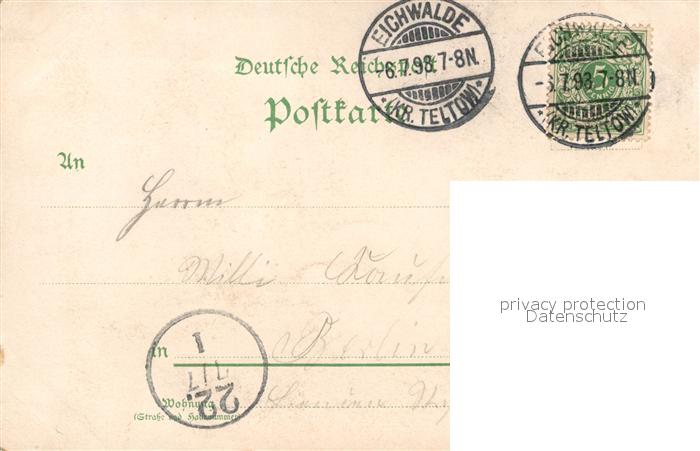 Deutsche Reichspost
Postkarte
EICHWALDE
6.7.98.7-8N.
*(KR. TELTOW)*
EICHWALDE
7.98.7-8N.
*(KR. TELTOW)*
5
An
Herrn
Willi
in Berlin
Wohnung
(Straße und Hausnummer)
22.
7/7
1
privacy protection
Datenschutz